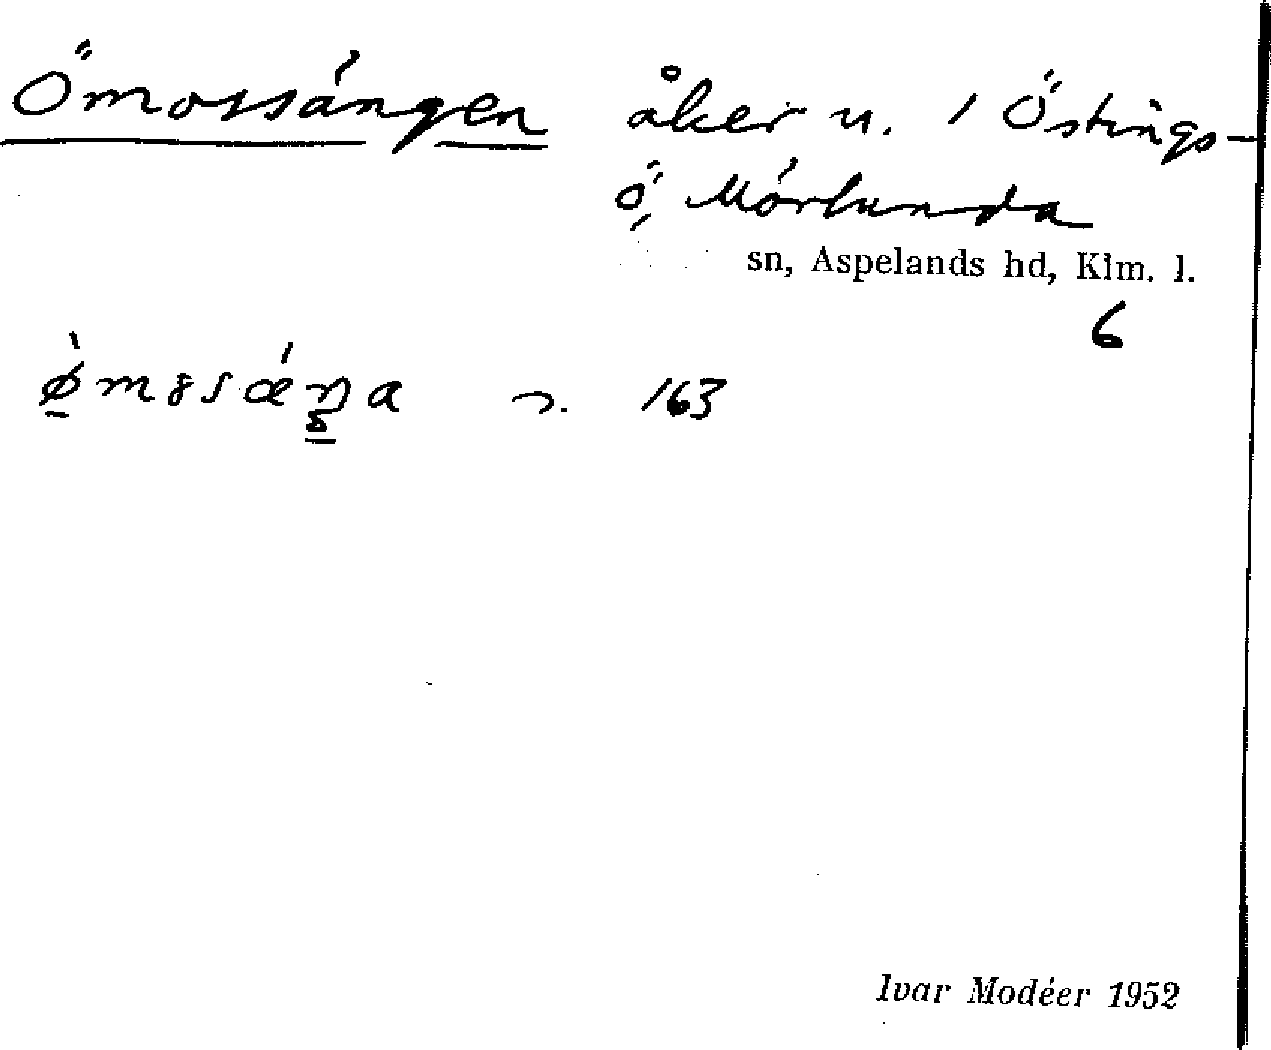 Ömossängen åker u. 1 Östings-
ö, Mörlunda
sn, Aspelands hd, Klm. l.
6
163
Ivar Modéer 1952